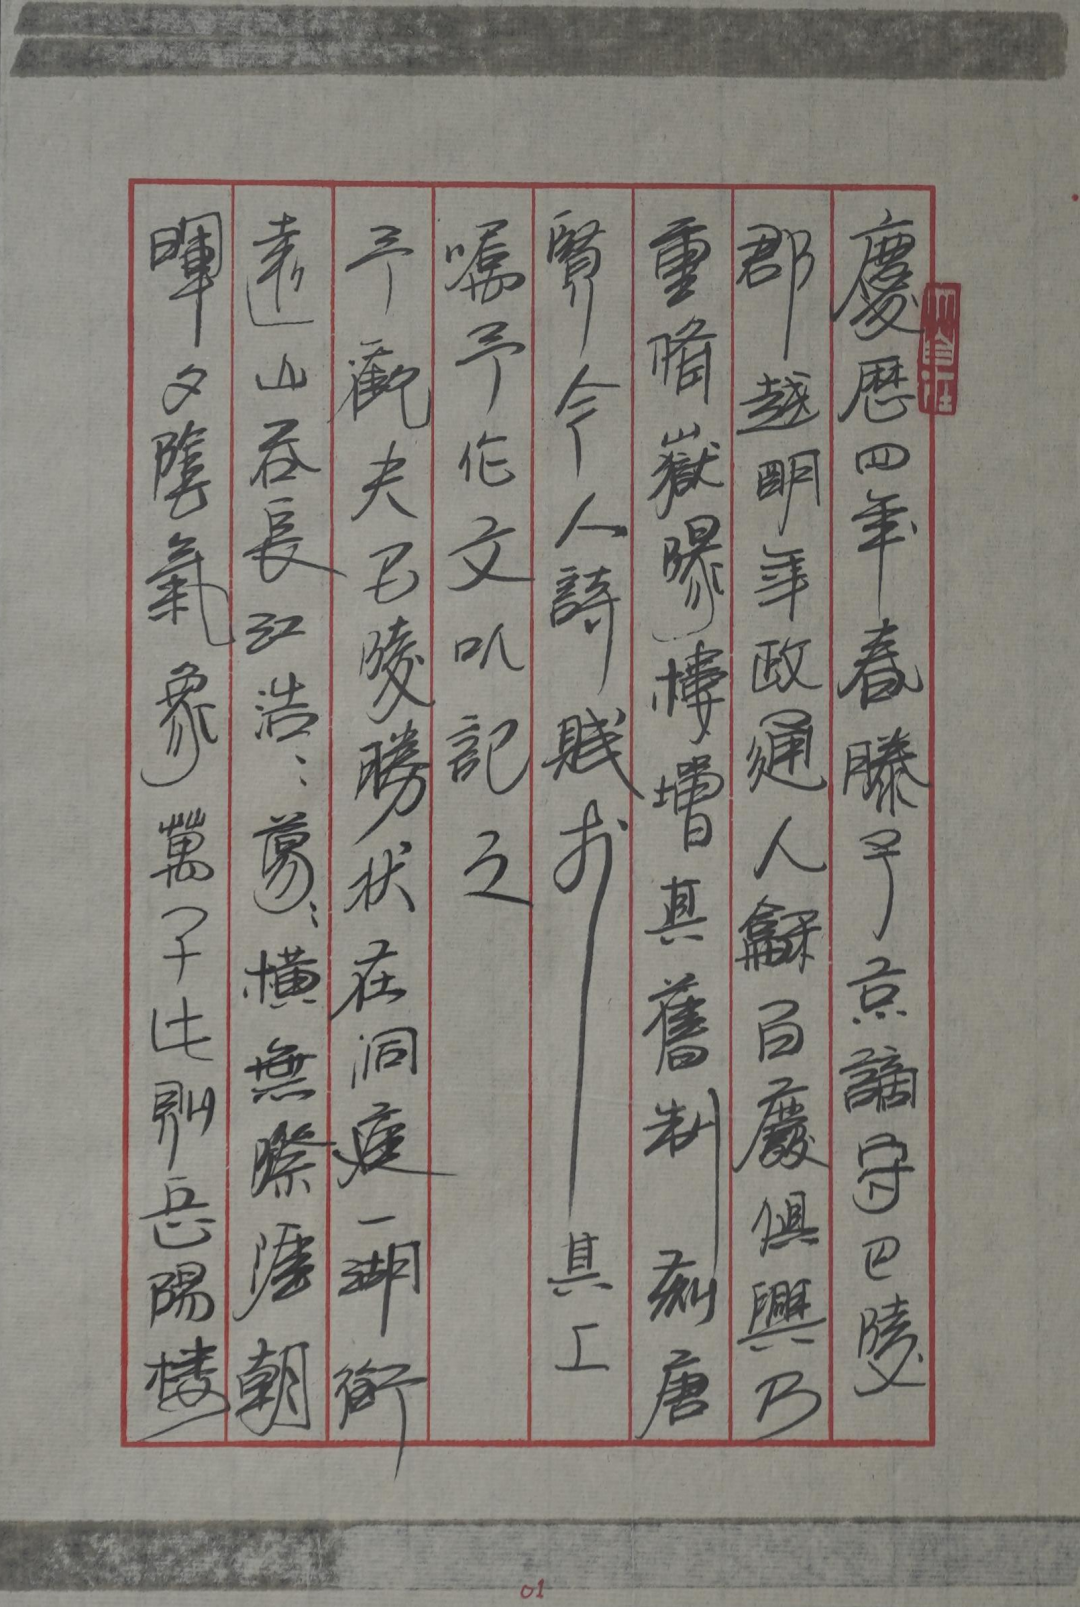 慶歷四年春滕子京謫守巴陵
郡越明年政通人龢百廢俱興乃
重脩嶽陽樓增其舊制刻唐
賢今人詩賦於其上
囑予作文以記之
予觀夫巴陵勝狀在洞庭一湖銜
遠山吞長江浩〻蕩〻橫無際涯朝
暉夕陰氣象萬千此則岳陽楼
01